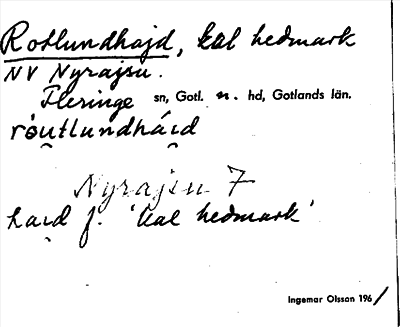 Rotlundhajd, kal hedmark
NV Nyrajsu.
Fleringe sn, Gotl. n. hd, Gotlands län.
rȯu̯tlundhái̯d
Nyrajsu 7
haid f. 'kal hedmark'
Ingemar Olsson 1961